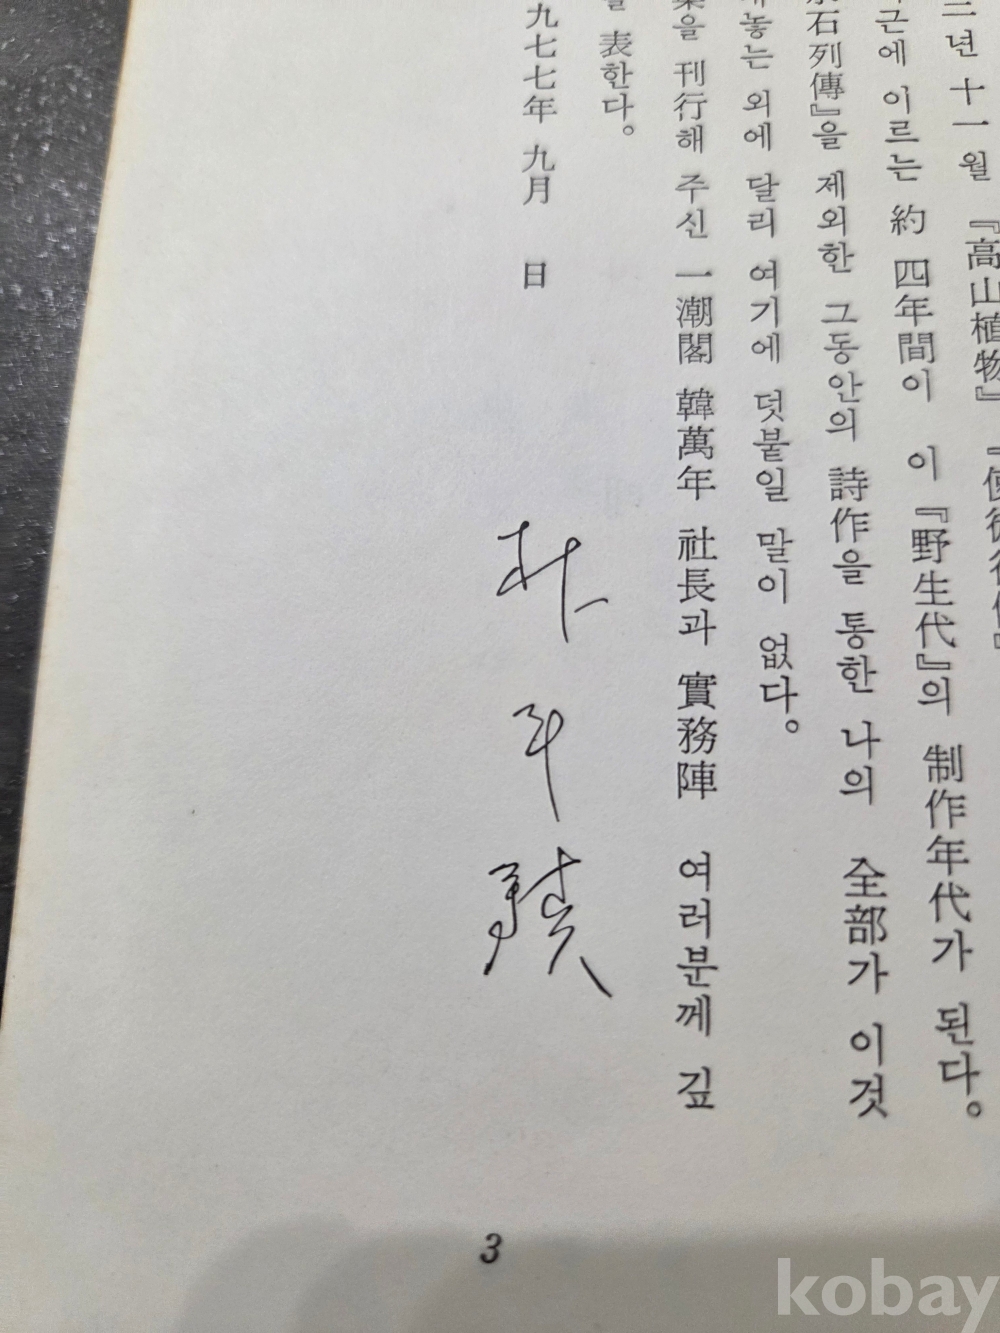 년 十一월 『高山植物』
근에 이르는 約 四年間이 이 『野生代』의 制作年代가 된다。
石列傳』을 제외한 그동안의 詩作을 통한 나의 全部가 이것
놓는 외에 달리 여기에 덧붙일 말이 없다。
을 刊行해 주신 一潮閣 韓萬年 社長과 實務陣 여러분께 깊
表한다。
九七七年 九月 日
朴斗鎭
3
kobay